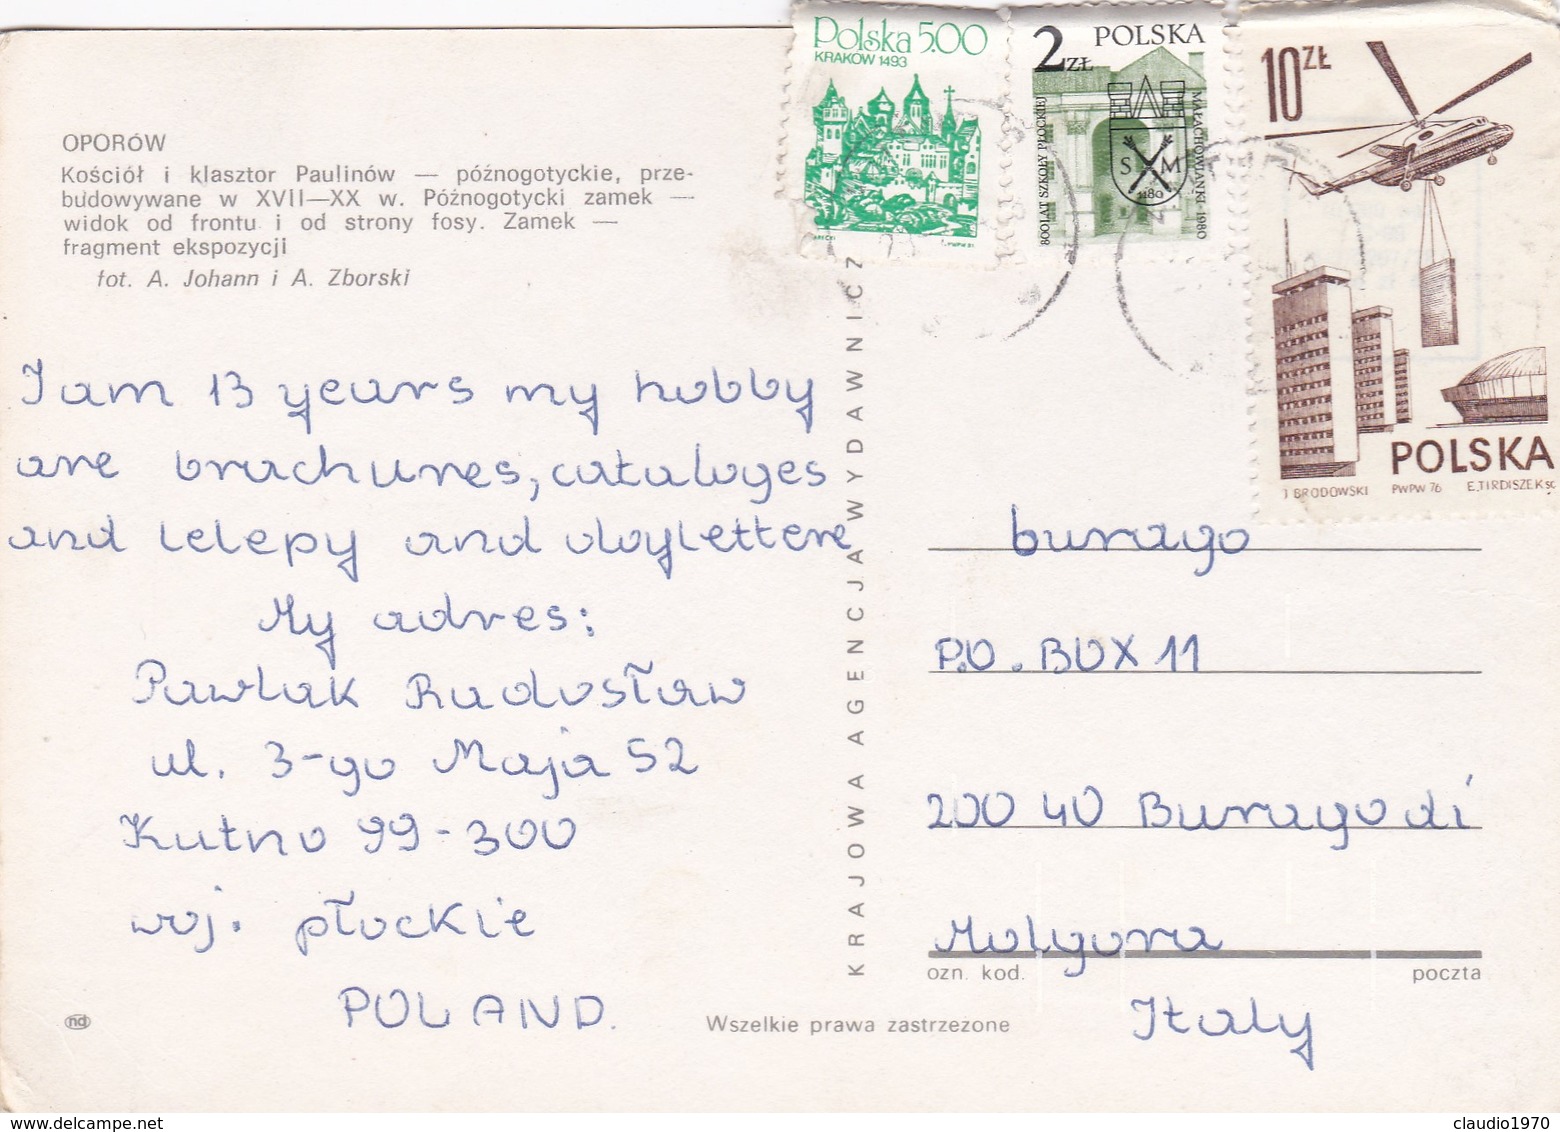 OPORÓW
Kościół i klasztor Paulinów — późnogotyckie, prze-
budowywane w XVII—XX w. Późnogotycki zamek —
widok od frontu i od strony fosy. Zamek —
fragment ekspozycji
fot. A. Johann i A. Zborski
I am 13 years my hobby
are brachures, cataloges
and lelepy and
My adres:
Pawlak Radosław
ul. 3-go Maja 52
Kutno 99-300
woj. płockie
POLAND.
nd
Wszelkie prawa zastrzeżone
KRAJOWA AGENCJA WYDAWNICZ
Polska 5.00
KRAKÓW 1493
PWPW
2 ZŁ
POLSKA
800 LAT SZKOŁY PŁOCKIEJ
MAŁACHOWIANKI-1980
S M
1180
10 ZŁ
POLSKA
J. BRODOWSKI PWPW 76 E. TIRDISZEK sc.
burago
P.O. BOX 11
200 40 Burago di
Molgora
ozn. kod. poczta
Italy
claudio1970